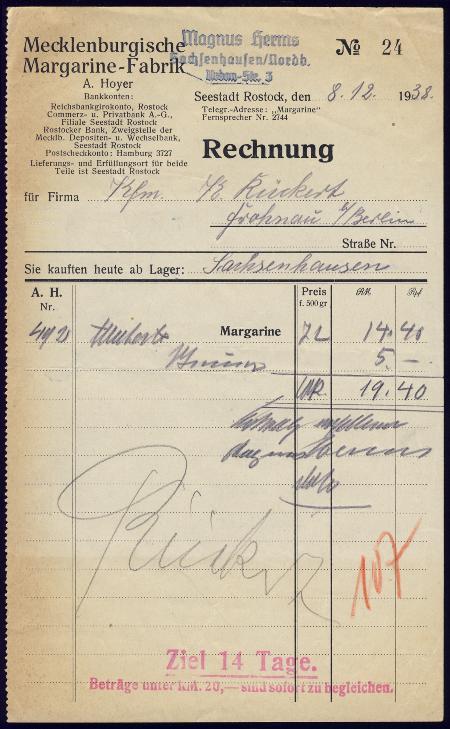 Mecklenburgische
Margarine-Fabrik
A. Hoyer
Bankkonten:
Reichsbankgirokonto, Rostock
Commerz- u. Privatbank A.-G.,
Filiale Seestadt Rostock
Rostocker Bank, Zweigstelle der
Mecklb. Depositen- u. Wechselbank,
Seestadt Rostock
Postscheckkonto: Hamburg 3727
Lieferungs- und Erfüllungsort für beide
Teile ist Seestadt Rostock
Magnus Herms
Sachsenhausen/Nordb.
Str. 3
№ 24
Seestadt Rostock, den 8.12. 1938.
Telegr.-Adresse: „Margarine"
Fernsprecher Nr. 2744
Rechnung
für Firma Kfm. Rückert
Frohnau b/Berlin
Straße Nr.
Sie kauften heute ab Lager: Sachsenhausen
A. H.
Nr.
Preis
f. 500 gr
RM
Rpf
Margarine 72 14.40
5.—
19.40
107
Ziel 14 Tage.
Beträge unter RM. 20,— sind sofort zu begleichen.